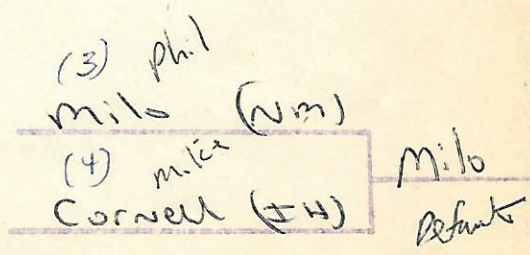 (3) Phil
Milo (NM)
(4) Mike
Cornell (IH)
Milo
Default